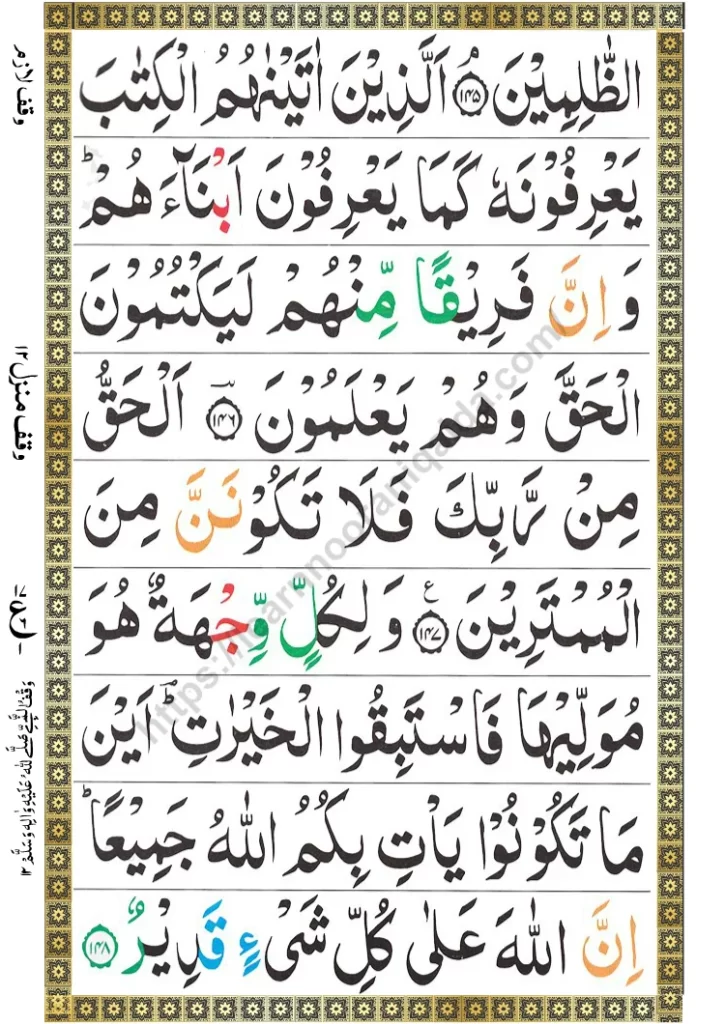 الظّٰلِمِيْنَ ۘ﴿۱۴۵﴾ اَلَّذِيْنَ اٰتَيْنٰهُمُ الْكِتٰبَ
يَعْرِفُوْنَهٗ كَمَا يَعْرِفُوْنَ اَبْنَآءَ هُمْ ؕ
وَ اِنَّ فَرِيْقًا مِّنْهُمْ لَيَكْتُمُوْنَ
الْحَقَّ وَهُمْ يَعْلَمُوْنَ ﴿۱۴۶﴾ اَلْحَقُّ
مِنْ رَّبِّكَ فَلَا تَكُوْنَنَّ مِنَ
الْمُمْتَرِيْنَ ﴿۱۴۷﴾ ع وَ لِكُلٍّ وِّجْهَةٌ هُوَ
مُوَلِّيْهَا فَاسْتَبِقُوا الْخَيْرٰتِ ؕ اَيْنَ
مَا تَكُوْنُوْا يَاْتِ بِكُمُ اللّٰهُ جَمِيْعًا ؕ
اِنَّ اللّٰهَ عَلٰى كُلِّ شَیْءٍ قَدِيْرٌ ﴿۱۴۸﴾
وقف لازم
وقف منزل ۱۲
وَقْفُ النَّبِيِّ صَلَّى اللّٰهُ عَلَيْهِ وَاٰلِهٖ وَسَلَّمْ ۱۲
https://learnnooraniqaida.com/